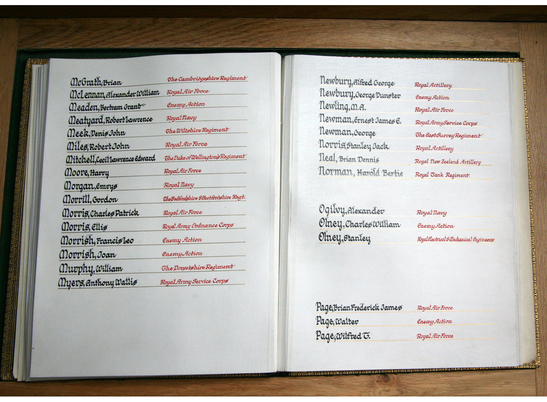 McGrath, Brian The Cambridgeshire Regiment
McLennan, Alexander William Royal Air Force
Meaden, Bertram Grant Enemy Action
Meatyard, Robert Lawrence Royal Navy
Meek, Denis John The Wiltshire Regiment
Miles, Robert John Royal Air Force
Mitchell, Cecil Lawrence Edward The Duke of Wellington's Regiment
Moore, Harry Royal Air Force
Morgan, Emrys Royal Navy
Morrill, Gordon The Bedfordshire & Hertfordshire Regt.
Morris, Charles Patrick Royal Air Force
Morris, Ellis Royal Army Ordnance Corps
Morrish, Francis Leo Enemy Action
Morrish, Joan Enemy Action
Murphy, William The Dorsetshire Regiment
Myers, Anthony Wallis Royal Army Service Corps
Newbury, Alfred George Royal Artillery
Newbury, George Dunster Enemy Action
Newling, M.A. Royal Air Force
Newman, Ernest James E. Royal Army Service Corps
Newman, George The East Surrey Regiment
Norris, Stanley Jack Royal Artillery
Neal, Brian Dennis Royal New Zealand Artillery
Norman, Harold Bertie Royal Tank Regiment
Ogilvy, Alexander Royal Navy
Olney, Charles William Enemy Action
Olney, Stanley Royal Electrical & Mechanical Engineers
Page, Brian Frederick James Royal Air Force
Page, Walter Enemy Action
Page, Wilfred T. Royal Air Force